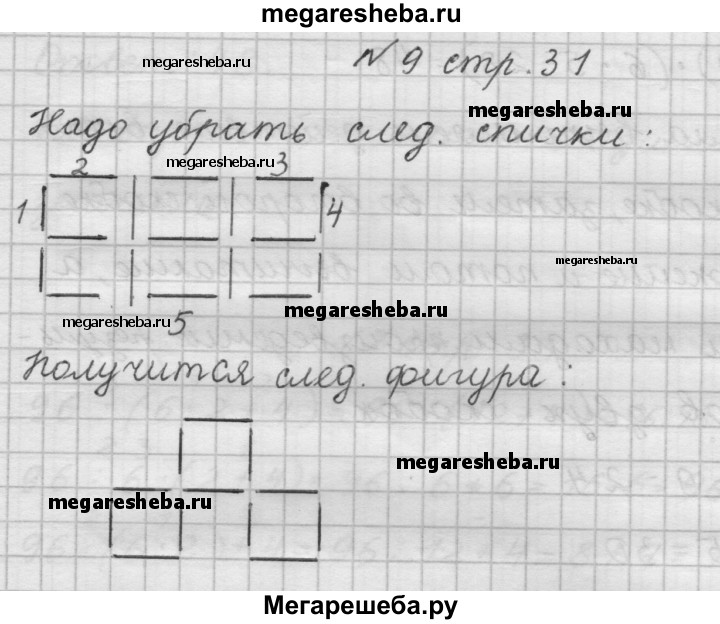 megaresheba.ru
megaresheba.ru
N 9 стр. 31
megaresheba.ru
Надо убрать след. спички:
megaresheba.ru
2 3
1 4
megaresheba.ru
megaresheba.ru
megaresheba.ru
5
Получится след. фигура:
megaresheba.ru
megaresheba.ru
Мегарешеба.ру